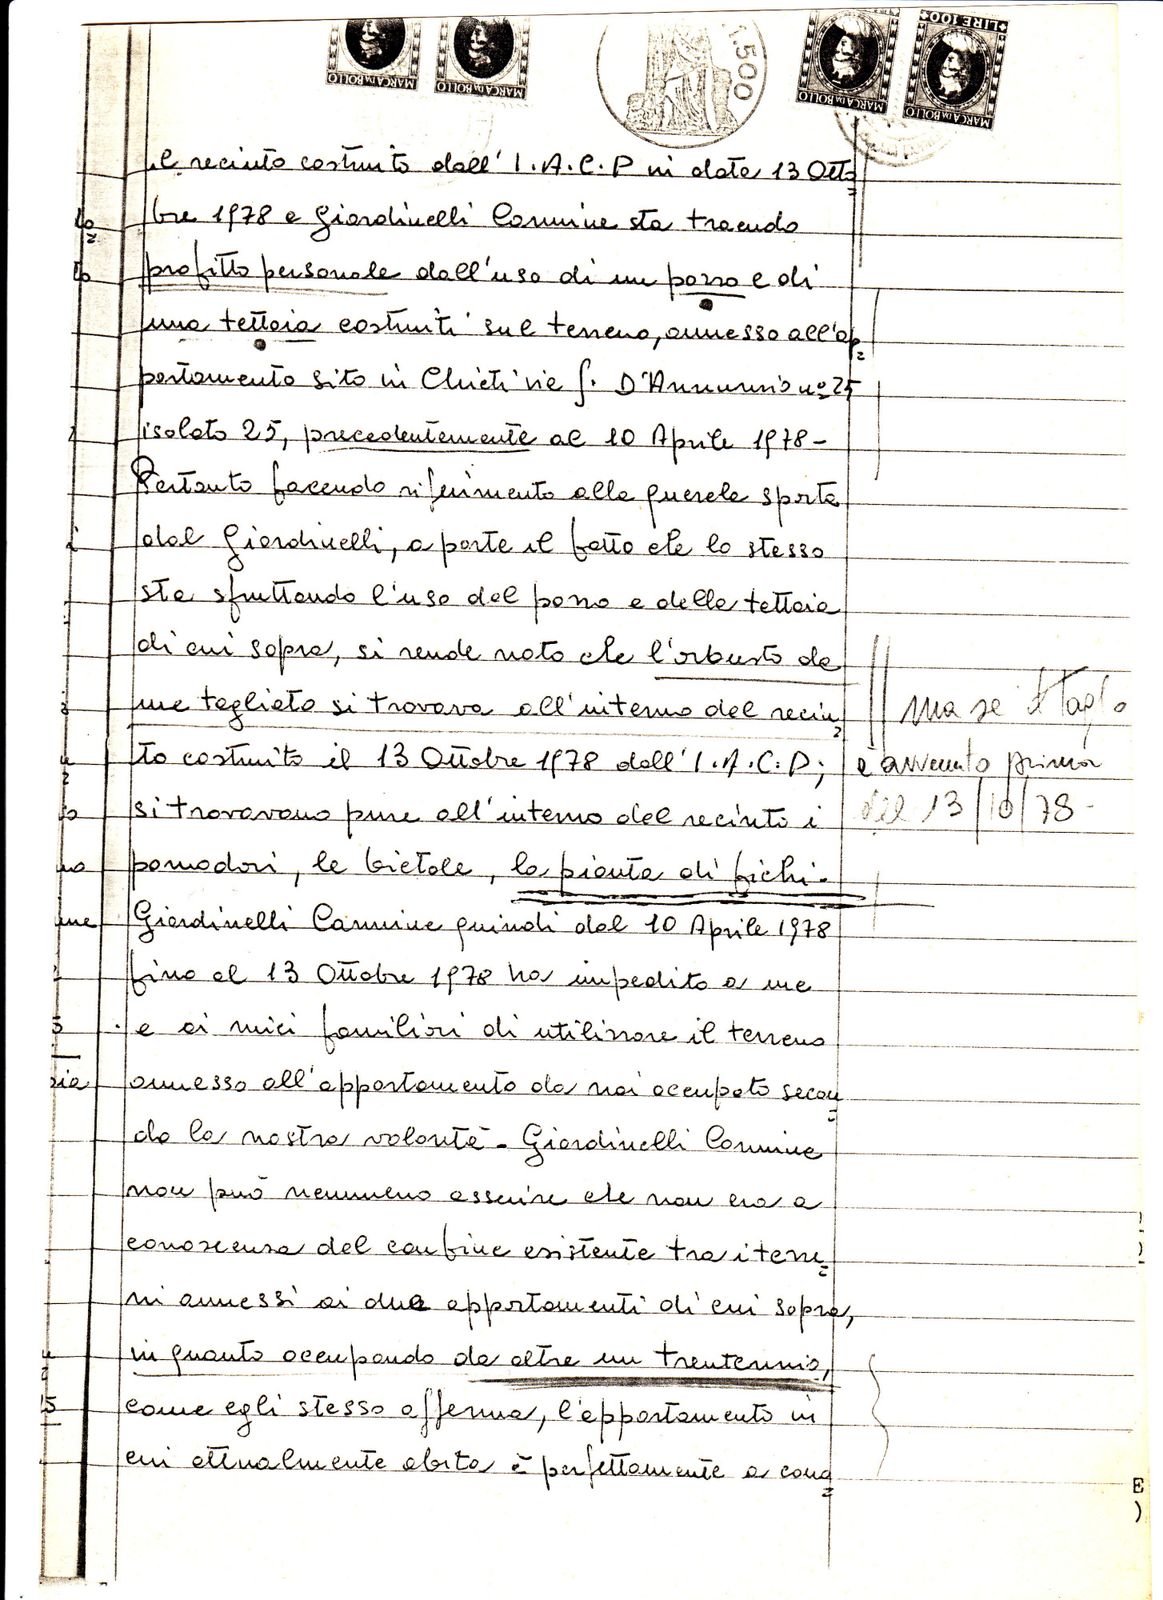 MARCA DA BOLLO
MARCA DA BOLLO
L.500
MARCA DA BOLLO
MARCA DA BOLLO
LIRE 100
il recinto costruito dall' I.A.C.P in data 13 Otto
bre 1978 e Giardinelli Carmine sta traendo
profitto personale dall'uso di un pozzo e di
una tettoia costruiti sul terreno, annesso all'ap
partamento sito in Chieti vie G. D'Annunzio nº 25
isolato 25, precedentemente al 10 Aprile 1978-
Pertanto facendo riferimento alla querela sporta
dal Giardinelli, a parte il fatto che lo stesso
sta sfruttando l'uso del pozzo e della tettoia
di cui sopra, si rende noto che l'arbusto da
me tagliato si trovava all'interno del recin
to costruito il 13 Ottobre 1978 dall' I.A.C.P;
si trovavano pure all'interno del recinto i
pomodori, le bietole, la pianta di fichi.
Giardinelli Carmine quindi dal 10 Aprile 1978
fino al 13 Ottobre 1978 ha impedito a me
e ai miei familiari di utilizzare il terreno
annesso all'appartamento da noi occupato secon
do la nostra volontà. Giardinelli Carmine
non può nemmeno asserire che non era a
conoscenza del confine esistente tra i terre
ni annessi ai due appartamenti di cui sopra,
in quanto occupando da oltre un trentennio,
come egli stesso afferma, l'appartamento in
cui attualmente abita è perfettamente a cono
ma se il taglio
è avvenuto prima
del 13/10/78-